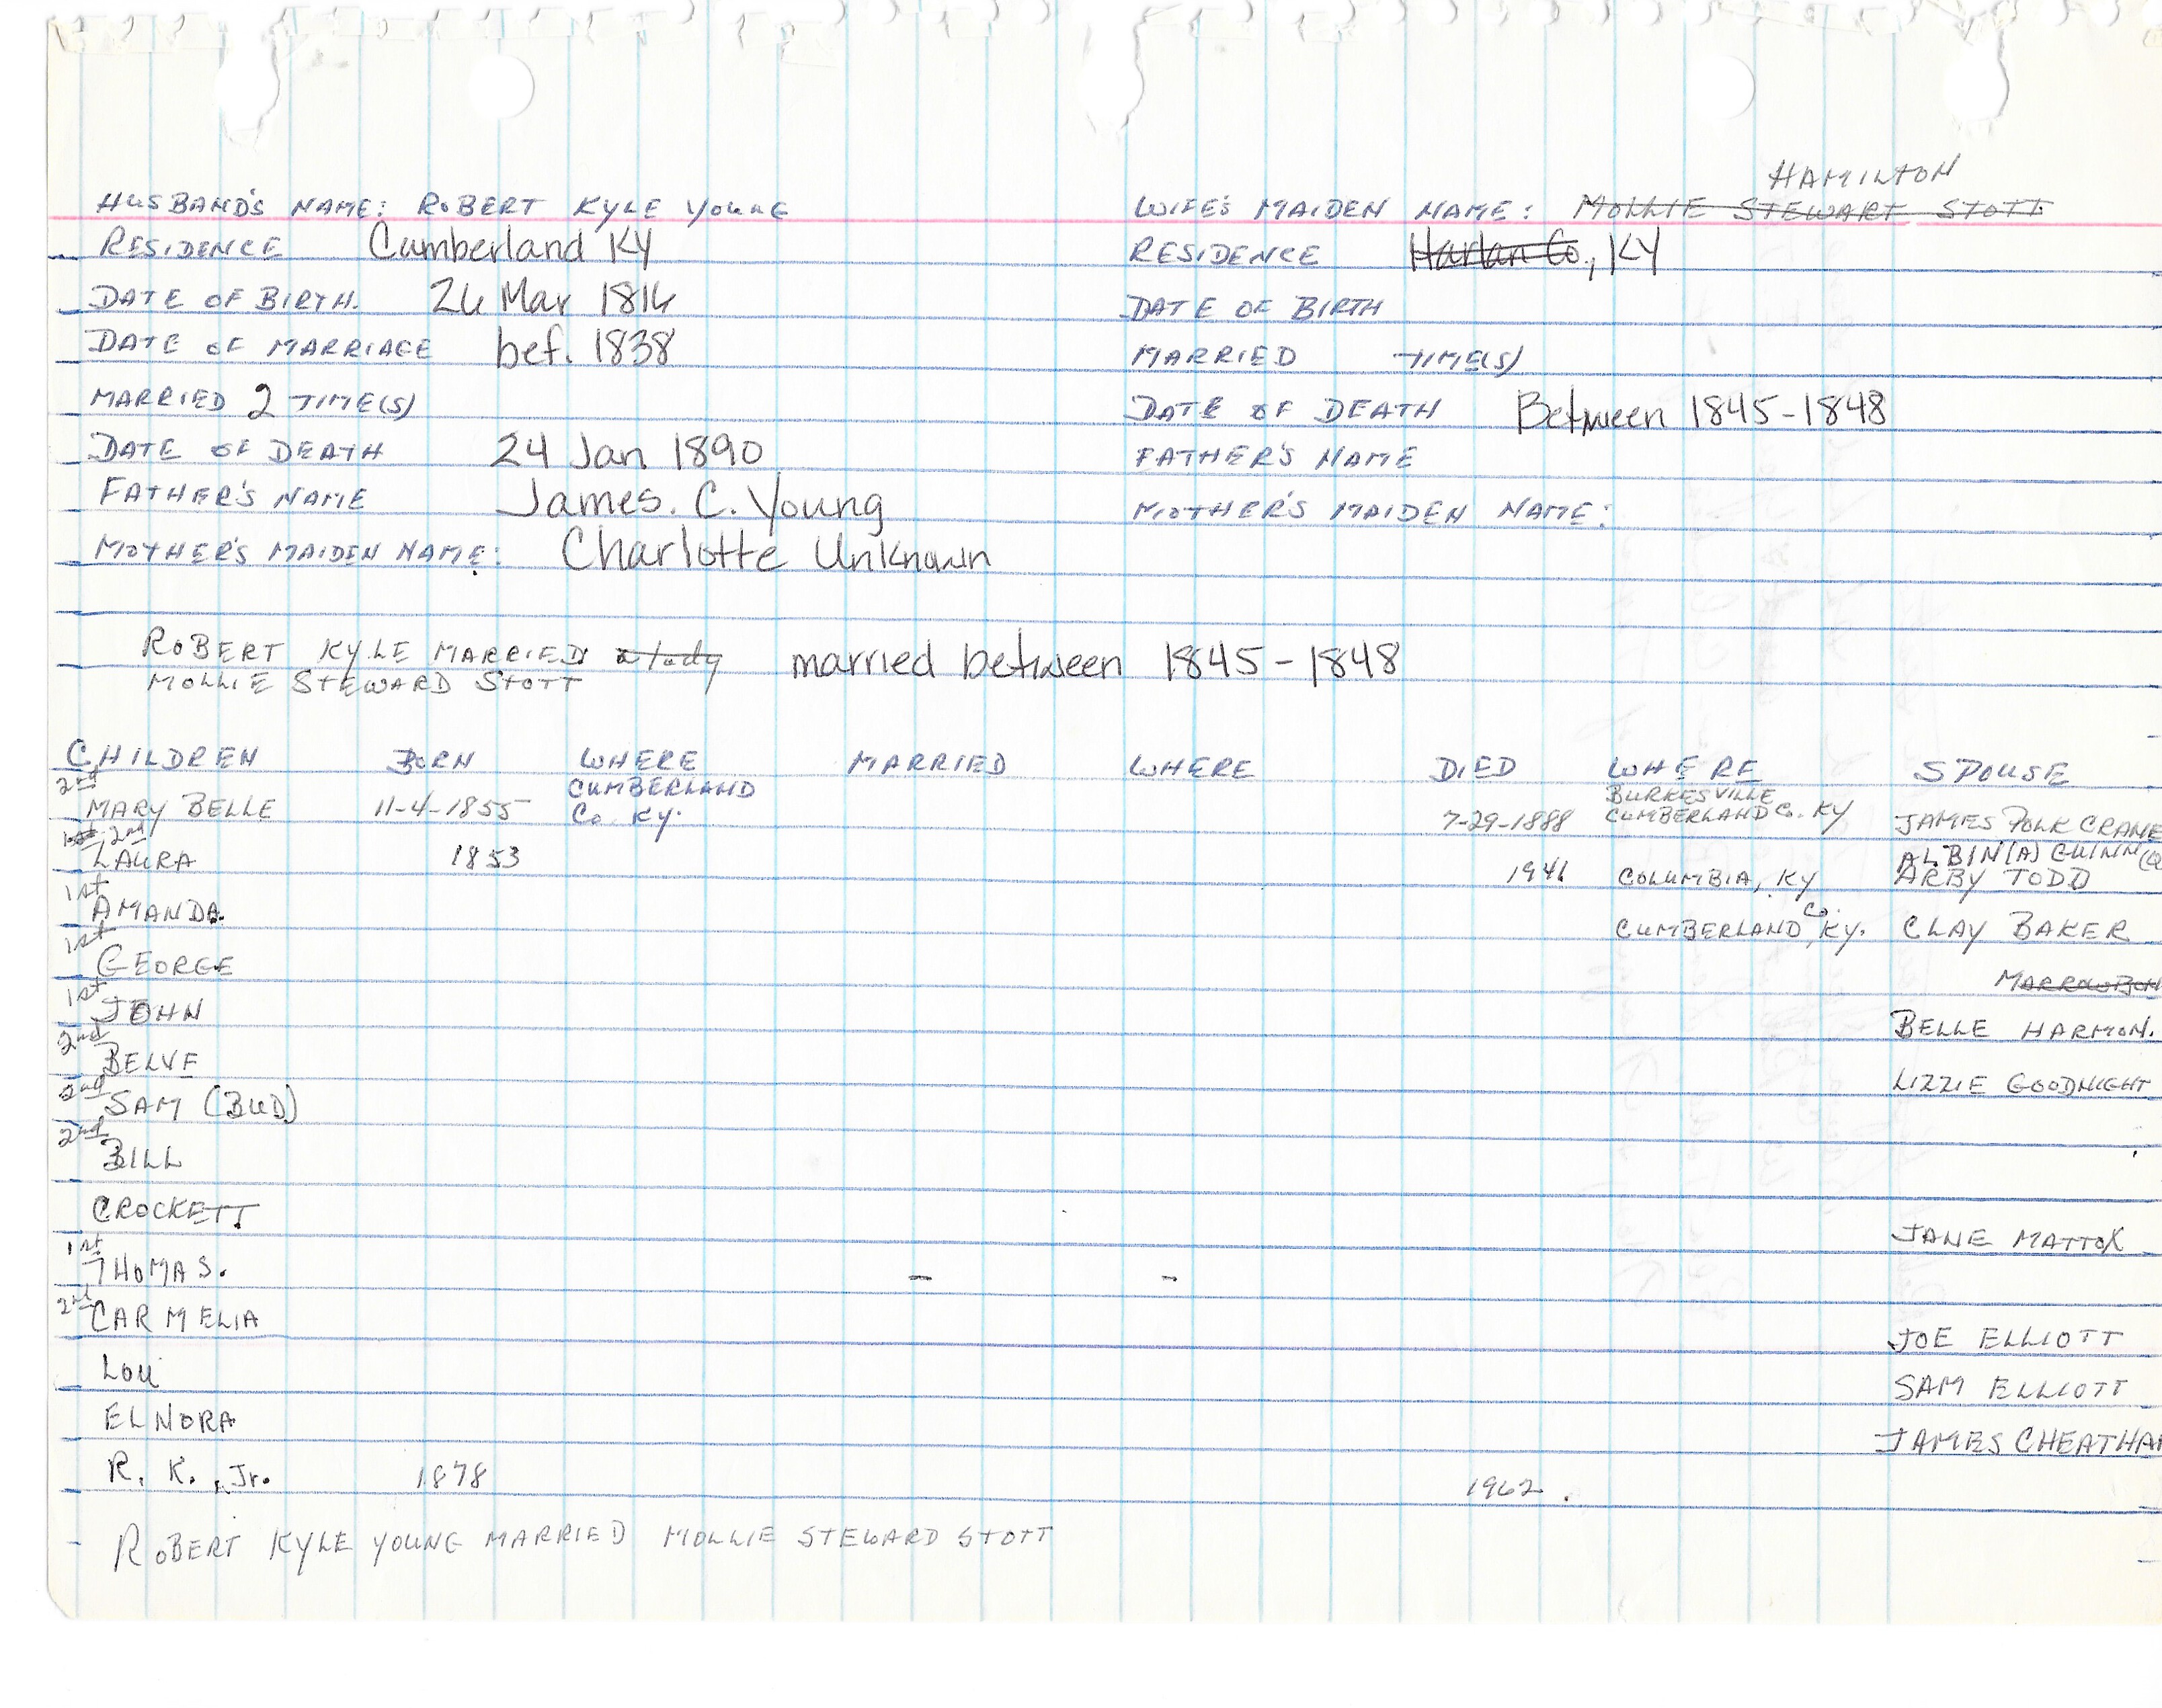 HAMILTON
HUSBAND'S NAME: ROBERT KYLE YOUNG WIFE'S MAIDEN NAME: MOLLIE STEWART STOTT
RESIDENCE Cumberland KY RESIDENCE Harlan Co., KY
DATE OF BIRTH. Mar DATE OF BIRTH
DATE OF MARRIAGE bef. 1838 MARRIED TIME(S)
MARRIED 2 TIME(S) DATE OF DEATH Between 1845-1848
DATE OF DEATH 24 Jan 1890 FATHER'S NAME
FATHER'S NAME James. C. Young MOTHER'S MAIDEN NAME:
MOTHER'S MAIDEN NAME: Charlotte Unknown
ROBERT KYLE MARRIED married between 1845-1848
MOLLIE STEWARD STOTT
CHILDREN BORN WHERE MARRIED WHERE DIED WHERE SPOUSE
2nd CUMBERLAND BURKESVILLE
MARY BELLE 11-4-1855 Co. KY. 7-29-1888 CUMBERLAND Co. KY JAMES POLK CRANE
1st, 2nd ALBIN(A) GUINN
LAURA 1853 COLUMBIA, KY ARBY TODD
1st
AMANDA. CUMBERLAND Co. KY. CLAY BAKER
1st
GEORGE
1st
JOHN BELLE HARMON.
2nd
BELVE LIZZIE GOODNIGHT
2nd
SAM (BUD)
2nd
BILL
CROCKETT JANE MATTOX
1st
THOMAS. - -
2nd
CARMELIA JOE ELLIOTT
LOU SAM ELLIOTT
ELNORA JAMES CHEATHAM
R. K., Jr. 1878 1962.
- ROBERT KYLE YOUNG MARRIED MOLLIE STEWARD STOTT